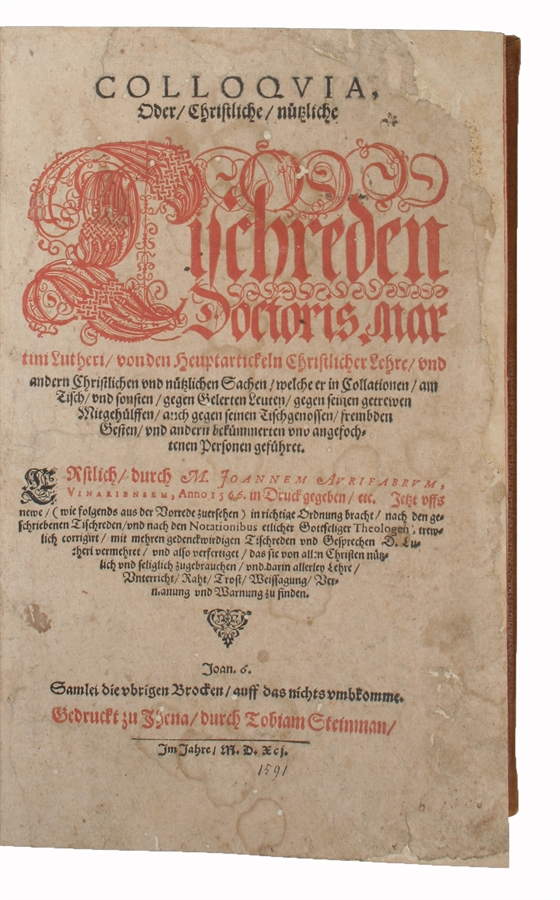 COLLOQVIA,
Oder/ Christliche/ nützliche
Tischreden
Doctoris Mar
tini Lutheri/ von den Heuptartickeln Christlicher Lehre/ vnd
andern Christlichen vnd nützlichen Sachen/ welche er in Collationen/ am
Tisch/ vnd sonsten/ gegen Gelerten Leuten/ gegen seinen getrewen
Mitgehülffen/ auch gegen seinen Tischgenossen/ frembden
Gesten/ vnd andern bekümmerten vnd angefoch-
tenen Personen geführet.
ERstlich/ durch M. JOANNEM AVRIFABRVM,
VINARIENSEM, Anno 1566. in Druck gegeben/ etc. Jetzt vffs
newe/ (wie folgends aus der Vorrede zuersehen) in richtige Ordnung bracht/ nach den ge-
schriebenen Tischreden/ vnd nach den Notationibus etlicher Gottseliger Theologen, trew-
lich corrigirt/ mit mehren gedenckwirdigen Tischreden vnd Gesprechen D. Lu-
theri vermehret/ vnd also verfertiget/ das sie von allen Christen nütz-
lich vnd seliglich zugebrauchen/ vnd darin allerley Lehre/
Vnterricht/ Raht/ Trost/ Weissagung/ Ver-
manung vnd Warnung zu finden.
Joan. 6.
Samlet die vbrigen Brocken/ auff das nichts vmbkomme.
Gedruckt zu Jhena/ durch Tobiam Steinman/
Im Jahre/ M. D. Xcj.
1591